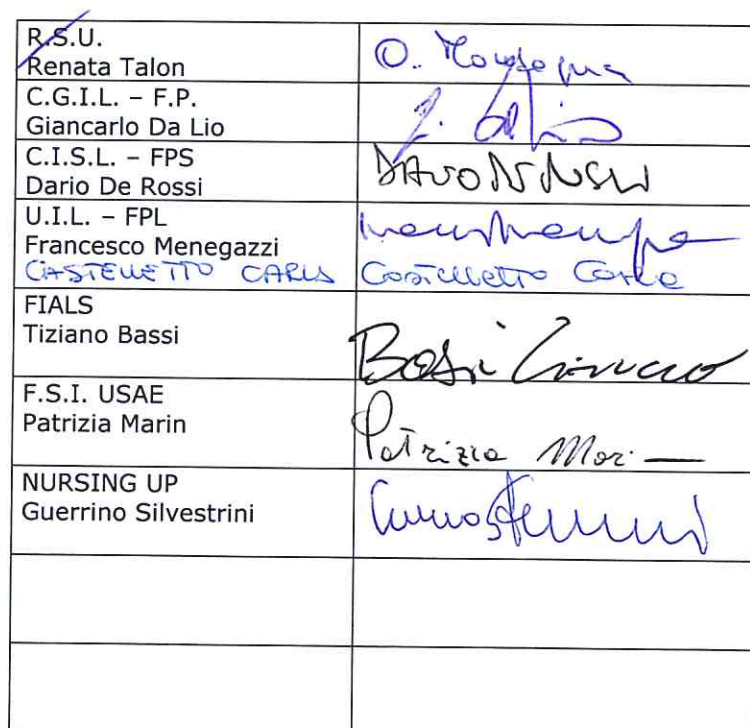 R.S.U.
Renata Talon
C.G.I.L. – F.P.
Giancarlo Da Lio
C.I.S.L. – FPS
Dario De Rossi
U.I.L. – FPL
Francesco Menegazzi
CASTELLETTO CARLA Castelletto Carla
FIALS
Tiziano Bassi
F.S.I. USAE
Patrizia Marin
Patrizia
NURSING UP
Guerrino Silvestrini